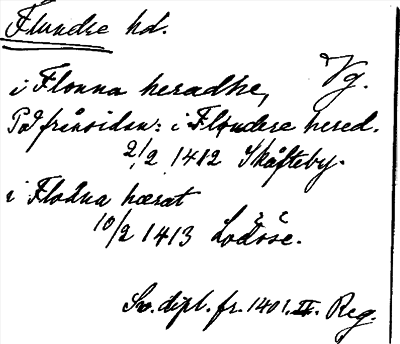 Flundre hd.
Vg.
i Flonna heradhe,
På frånsidan: i Flondere hered.
2/2 1412 Skåfteby.
i Flodna hærat
10/2 1413 Lodöse.
Sv. dipl. fr. 1401. II. Reg.